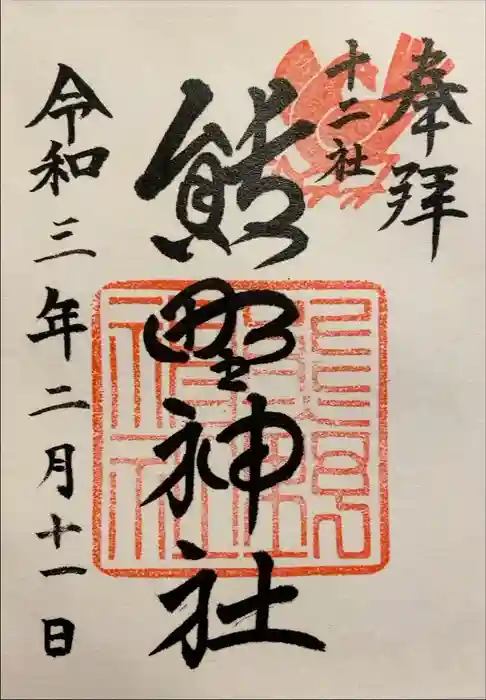 奉拝
十二社
熊野神社
令和三年二月十一日